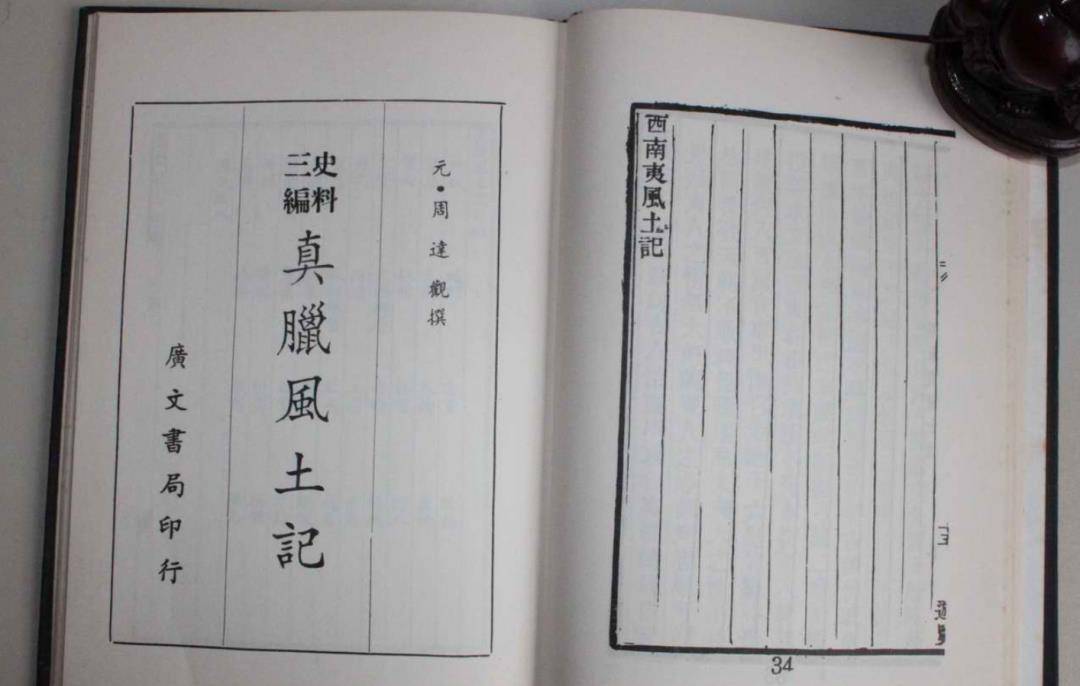 元•周達觀撰
史料
三編
真臘風土記
廣文書局印行
西南夷風土記
34